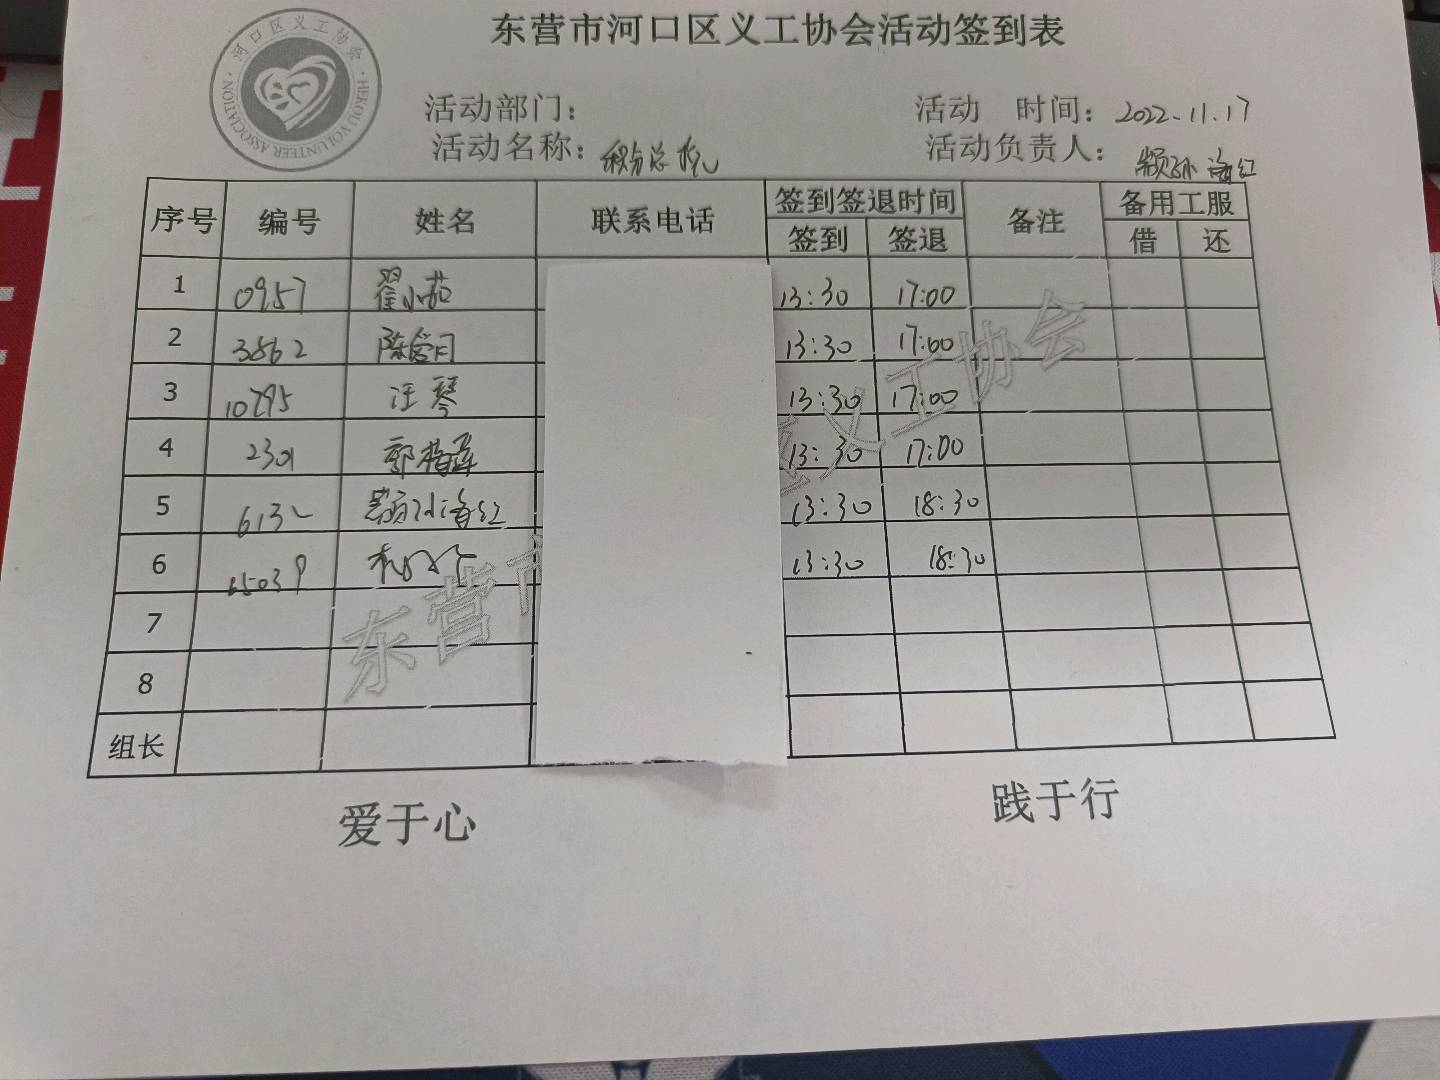 东营市河口区义工协会活动签到表
河口区义工协会
HEKOU VOLUNTEER ASSOCIATION
活动部门：
活动 时间：2022.11.17
活动名称：积分总
活动负责人：颛孙海红
序号 编号 姓名 联系电话 签到签退时间 备注 备用工服
签到 签退 借 还
1 0957 翟小茹 13:30 17:00
2 3862 陈 13:30 17:00
3 10295 汪琴 13:30 17:00
4 2301 郭梅莲 13:30 17:00
5 6132 颛孙海红 13:30 18:30
6 15039 13:30 18:30
7
8
组长
东营市 区义工协会
爱于心 践于行